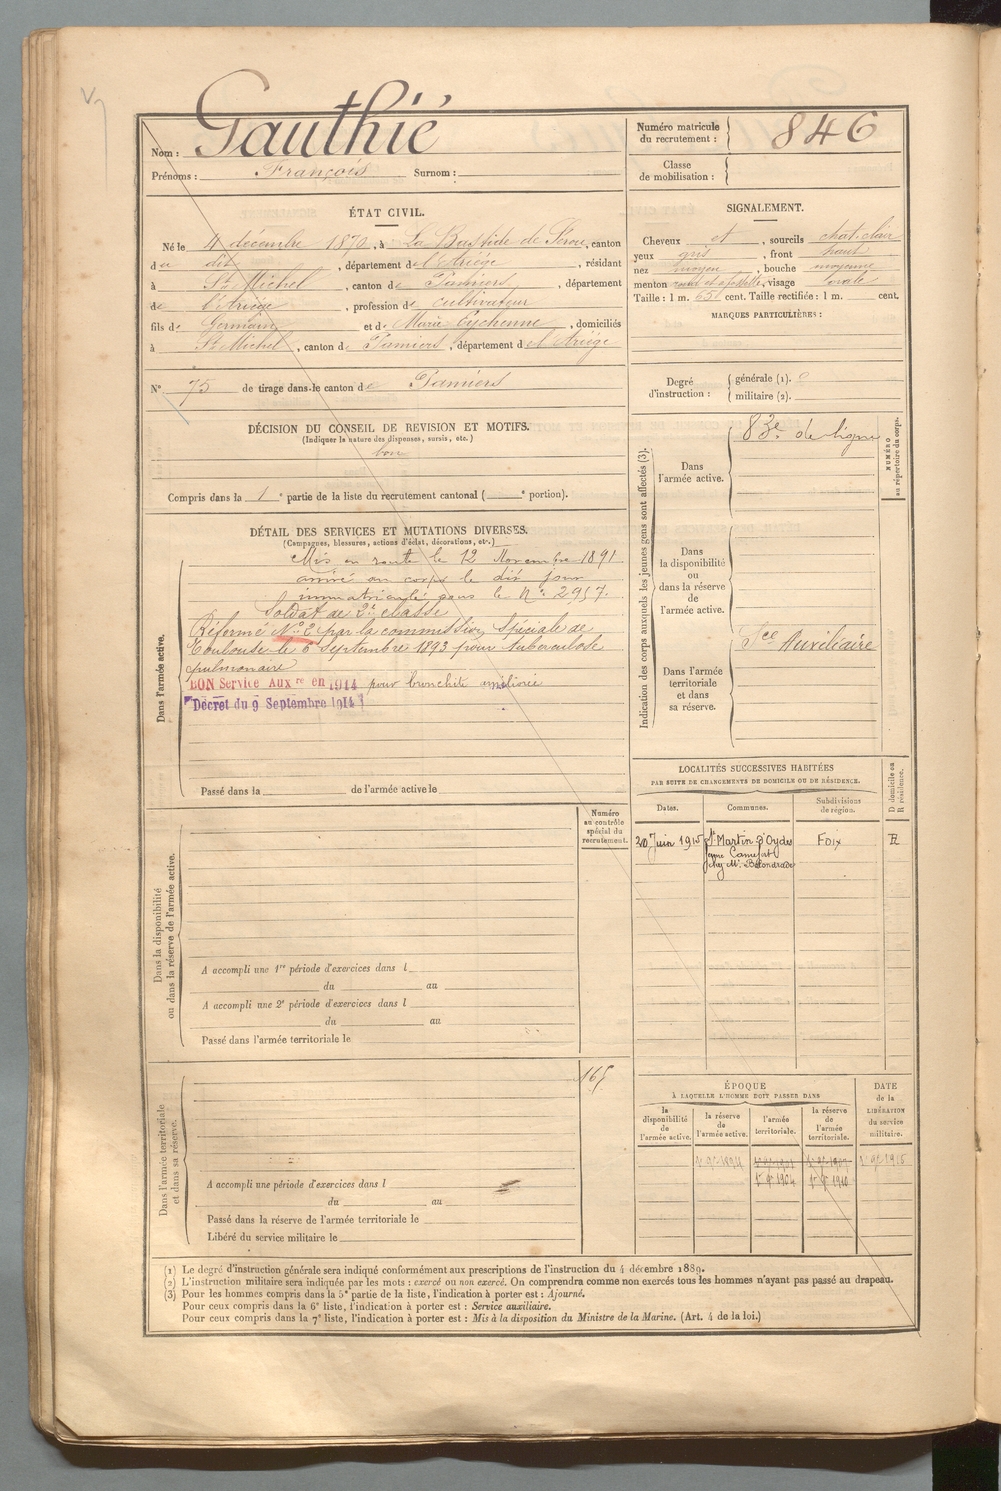 Nom : Gauthié
Prénoms : François Surnom :
Numéro matricule du recrutement : 846
Classe de mobilisation :
ÉTAT CIVIL.
Né le 4 décembre 1870, à La Bastide de Sérou, canton
du dit, département de l'Ariège, résidant
à St Michel, canton de Pamiers, département
de l'Ariège, profession de cultivateur
fils de Germain et de Marie Eychenne, domiciliés
à St Michel, canton de Pamiers, département de l'Ariège
N° 75 de tirage dans le canton de Pamiers
SIGNALEMENT.
Cheveux et, sourcils chat. clair
yeux gris, front haut
nez moyen, bouche moyenne
menton rond et à fossette, visage ovale
Taille : 1 m. 65 cent. Taille rectifiée : 1 m. cent.
MARQUES PARTICULIÈRES :
Degré d'instruction : générale (1).
militaire (2).
DÉCISION DU CONSEIL DE REVISION ET MOTIFS.
(Indiquer la nature des dispenses, sursis, etc.)
bon
Compris dans la 1e partie de la liste du recrutement cantonal ( e portion).
DÉTAIL DES SERVICES ET MUTATIONS DIVERSES.
(Campagnes, blessures, actions d'éclat, décorations, etc.)
Dans l'armée active.
Mis en route le 12 Novembre 1891
arrivé au corps le dit jour
immatriculé sous le N° 2957.
Soldat de 2e classe
Réformé N° 2 par la commission spéciale de
Toulouse le 6 septembre 1893 pour tuberculose
pulmonaire
BON Service Aux re en 1914 pour bronchite améliorée
Décret du 9 Septembre 1914
Passé dans la de l'armée active le
Indication des corps auxquels les jeunes gens sont affectés (3).
NUMÉRO au répertoire du corps.
Dans l'armée active.
83e de ligne
Dans la disponibilité ou dans la réserve de l'armée active.
Dans l'armée territoriale et dans sa réserve.
Sce Auxiliaire
LOCALITÉS SUCCESSIVES HABITÉES
PAR SUITE DE CHANGEMENTS DE DOMICILE OU DE RÉSIDENCE.
D domicile ou R résidence.
Dates. Communes. Subdivisions de région.
20 Juin 1915 St Martin d'Oydes Foix R
chez Mr
Dans la disponibilité ou dans la réserve de l'armée active.
Numéro au contrôle spécial du recrutement.
A accompli une 1re période d'exercices dans l
du au
A accompli une 2e période d'exercices dans l
du au
Passé dans l'armée territoriale le
Dans l'armée territoriale et dans sa réserve.
A accompli une période d'exercices dans l
du au
Passé dans la réserve de l'armée territoriale le
Libéré du service militaire le
ÉPOQUE
À LAQUELLE L'HOMME DOIT PASSER DANS
DATE de la LIBÉRATION du service militaire.
la disponibilité de l'armée active. la réserve de l'armée active. l'armée territoriale. la réserve de l'armée territoriale.
(1) Le degré d'instruction générale sera indiqué conformément aux prescriptions de l'instruction du 4 décembre 1889.
(2) L'instruction militaire sera indiquée par les mots : exercé ou non exercé. On comprendra comme non exercés tous les hommes n'ayant pas passé au drapeau.
(3) Pour les hommes compris dans la 5e partie de la liste, l'indication à porter est : Ajourné.
Pour ceux compris dans la 6e liste, l'indication à porter est : Service auxiliaire.
Pour ceux compris dans la 7e liste, l'indication à porter est : Mis à la disposition du Ministre de la Marine. (Art. 4 de la loi.)